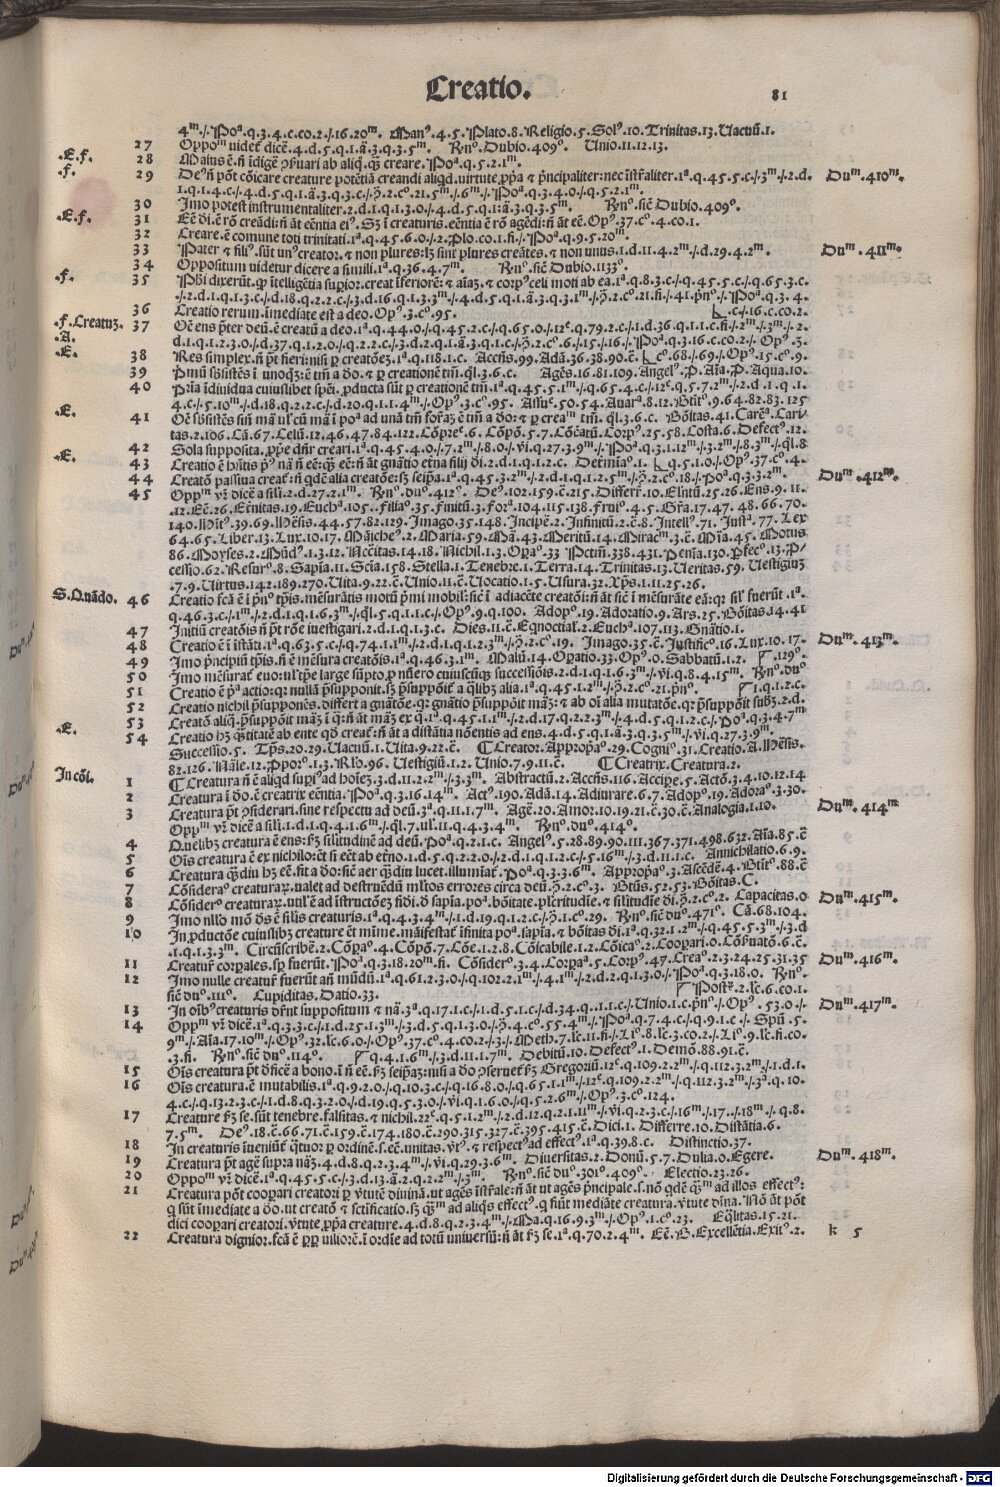 Creatio.
81
4ᵐ./.Poª.q.3.4.c.co.2./.16.20ᵐ. Manꝰ.4.5.Plato.8.Religio.5.Solꝰ.10.Trinitas.13.Uacuũ.1.
27 Oppoᵐ uidet᷑ dicẽ.4.d.5.q.1.ã.3.q.3.5ᵐ. Rṇᵒ.Dubio.409ᵒ. Unio.11.12.13.
.E.f. 28 Maius ẽ.ñ ĩdigẽ ab aliq̃.q̃ creare.Poª.q.5.2.1ᵐ.
.f. 29 Deꝰ ñ põt cõicare creature potẽtiã creandi aliqd.uirtute.ꝓp̃a ⁊ p̃ncipaliter:nec ĩstr̃aliter.1ª.q.45.5.c./.3ᵐ./.2.d. Duᵐ.410ᵐ.
1.q.1.4.c./.4.d.5.q.1.ã.3.q.3.c./.p̃.2.cᵒ.21.5ᵐ./.6ᵐ./.Poª.q.3.4.0./.q.5.2.1ᵐ.
30 Imo potest instrumentaliter.2.d.1.q.1.3.0./.4.d.5.q.1:ã.3.q.3.5ᵐ. Rṇᵒ.siẽ Dubio.409ᵒ.
.E.f. 31 Eẽ di.ẽ rõ creãdi:ñ ãt eẽntia eiꝰ. Sꝫ ĩ creaturis.eẽntia ẽ rõ agẽdi:ñ ãt eẽ.Opꝰ.37.cᵒ.4.co.1.
32 Creare.ẽ comune toti trinitati.1ª.q.45.6.0./.2.Plo.co.1.fi./.Poª.q.9.5.20ᵐ.
33 Pater ⁊ filiꝰ.sũt unꝰ creator.⁊ non plures:lꝫ sint plures creãtes.⁊ non unus.1.d.11.4.2ᵐ./.d.29.4.2ᵐ. Duᵐ.411ᵐ.
34 Oppositum uidetur dicere a simili.1ª.q.36.4.7ᵐ. Rṇᵒ.siẽ Dubio.1133ᵒ.
.f. 35 Pħi dixerũt.ꝙ ĩtelligẽtia supior.creat ĩferiorẽ:⁊ aĩaꝫ.⁊ corpꝰ celi moti ab ea.1ª.q.8.3.c./.q.45.5.c./.q.65.3.c.
./.2.d.1.q.1.3.c./.d.18.q.2.2.c./.3.d.16.q.1.3.3ᵐ./.4.d.5.q.1.ã.3.q.3.1ᵐ./.p̃.2.cᵒ.21.fi./.41.p̃nᵒ./.Poª.q.3.4.
36 Creatio rerum.ĩmediate est a deo.Opꝰ.3.cᵒ.95. .c./.16.c.co.2.
.f.Creatuꝫ. 37 Oẽ ens p̃ter deũ.ẽ creatũ a deo.1ª.q.44.0./.q.45.2.c./.q.65.0./.12ᵉ.q.79.2.c./.1.d.36.q.1.1.c.fi./.2ᵐ./.3ᵐ./.2.
.A. d.1.q.1.2.3.0./.d.37.q.1.2.0./.q.2.2.c./.3.d.2.q.1.ã.3.q.1.c./.p̃.2.cᵒ.6./.15./.16./.Poª.q.3.16.c.co.2./. Opꝰ.3.
.E. 38 Res simplex.ñ p̃t fieri:nisi ꝑ creatõeꝫ.1ª.q.118.1.c. Accñs.99.Adã.36.38.90.c̃. cᵒ.68./.69./.Opꝰ.15.cᵒ.9.
39 P̃mũ sb̃sistẽs ĩ unoq̃ꝫ:ẽ tm̃ a do.⁊ ꝑ creationẽ tm̃.q̃l.3.6.c. Agẽs.16.81.109.Angelꝰ.P.Aĩa.P.Aqua.10.
40 Pr̃ia ĩdiuidua cuiuslibet spẽi.ꝓducta sũt ꝑ creationẽ tm̃.1ª.q.45.5.1ᵐ./.q.65.4.c./.12ᵉ.q.5.7.2ᵐ./.2.d.1.q.1.
4.c./.5.10ᵐ./.d.18.q.2.2.c./.d.20.q.1.1.4ᵐ./.Opꝰ.3.cᵒ.95. Assuꝰ.50.54.Auarª.8.12.Btĩtᵒ.9.64.82.83.125
.E. 41 Oẽ sb̃sistẽs siñ mã ul᷑ cũ mã ĩ poª ad unã tm̃ formaꝫ ẽ tm̃ a do:⁊ ꝑ creaᵐ tm̃.q̃l.3.6.c. Bõitas.41.Carẽª.Cari/
tas.2.106.Cã.67.Celũ.12.46.47.84.122.Cõp̃reᵉ.6.Cõpõ.5.7.Cõcãtũ.Corpꝰ.25.58.Costa.6.Defectꝰ.12.
42 Sola supposita.ꝓp̃e dñr creari.1ª.q.45.4.0./.7.2ᵐ./.8.0./.vi.q.27.3.9ᵐ./.Poª.q.3.1.12ᵐ./.3.2ᵐ./.8.3ᵐ./.q̃l.8
.E. 43 Creatio ẽ hñtis p̃ꝰ nã ñ eẽ:q̃ eẽ:ñ ãt gnãtio et̃na filij di.2.d.1.q.1.2.c. Det̃minaᵒ.1. .q.5.1.0./.Opꝰ.37.cᵒ.4.
44 Creatõ passiua creat᷑:ñ qdẽ alia creatõe:sꝫ seip̃a.1ª.q.45.3.2ᵐ./.2.d.1.q.1.2.5ᵐ./.p̃.2.cᵒ.18./.Poª.q.3.3.2ᵐ. Duᵐ.412ᵐ.
45 Oppᵐ vr̃ dicẽ a sili.2.d.27.2.1ᵐ. Rṇᵒ.duᵒ.412ᵒ. Deꝰ.102.159.c̃.215.Differr̃.10.Elñtũ.25.26.Ens.9.11.
.12.Eẽ.26.Et̃nitas.19.Euchª.105..Filiaᵒ.35.Finitũ.3.Forª.104.115.138.Fruiᵒ.4.5.Gr̃a.17.47. 48.66.70.
140.Hĩtꝰ.39.69.Hẽsis.44.57.82.129.Imago.35.148.Incipẽ.2.Infinitũ.2.c̃.8.Intellꝰ.71.Justª.77.Lex
64.65.Liber.13.Lux.10.17.Mãicheꝰ.2.Maria.59.Mã.43.Meritũ.14.Miracᵐ.3.c̃.Mĩa.45.Motus
86.Moyses.2.Mũdꝰ.1.3.12.Nccẽitas.14.18.Nichil.1.3.Oꝑaᵒ.33.Pctm̃.338.431.Penĩa.130.Pfecᵒ.13.P/
cessio.62.Resurᵒ.8.Sapĩa.11.Scĩa.158.Stella.1.Tenebre.1.Terra.14.Trinitas.13.Ueritas.59.Uestigiuꝫ
.7.9.Uirtus.142.189.270.Uita.9.22.c̃.Unio.11.c̃.Uocatio.1.5.Usura.32.Xp̃s.1.11.25.26.
S.Quãdo. 46 Creatio fcã ẽ ĩ p̃nᵒ tp̃is.mẽsurãtis motũ p̃mi mobil᷑:sic̃ ĩ adiacẽte creatõi:ñ ãt sic̃ ĩ mẽsurãte eã:q: sil᷑ fuerũt.1ª.
q.46.3.c./.1ᵐ./.2.d.1.q.1.6.3ᵐ./.q̃l.5.q.1.1.c./.Opꝰ.9.q.100. Adopᵒ.19.Adoratio.9.Ars.25.Bõitas.14.41
47 Initiũ creatõis ñ p̃t rõe iuestigari.2.d.1.q.1.3.c. Dies.11.c̃.Eqnoctial᷑.2.Euchª.107.113.Gnãtio.1.
48 Creatio ẽ ĩ ĩstãti.1ª.q.63.5.c./.q.74.1.1ᵐ./.2.d.1.q.1.2.3ᵐ./.p̃.2.cᵒ.19. Imago.35.c̃.Justificᵒ.16.Lux.10.17. Duᵐ.413ᵐ.
49 Imo p̃ncipiũ tp̃is.ñ ẽ mẽsura creatõis.1ª.q.46.3.1ᵐ. Malũ.14.Oꝑatio.33.Opꝰ.0.Sabbatũ.1.2. .129ᵒ.
50 Imo mẽsurat᷑ euo:ul᷑ tp̃e large sũpto.ꝑ nũero cuiuscũqꝫ successiõis.2.d.1.q.1.6.3ᵐ./.vi.q.8.4.15ᵐ. Rṇᵒ.duᵒ
51 Creatio ẽ p̃ª actio:q: nullã p̃supponit.sꝫ p̃suppõit᷑ a q̃libꝫ alia.1ª.q.45.1.2ᵐ./.p̃.2.cᵒ.21.p̃nᵒ. .1.q.1.2.c.
52 Creatio nichil p̃supponẽs.differt a gnãtõe.q: gnãtio p̃suppõit mãꝫ:⁊ ab oĩ alia mutatõe.q: p̃suppõit subꝫ.2.d.
53 Creatõ aliq̃.p̃suppõit mãꝫ ĩ q̃:ñ ãt mãꝫ ex q̃.1ª.q.45.1.1ᵐ./.2.d.17.q.2.2.3ᵐ./.4.d.5.q.1.2.c./.Poª.q.3.4.7ᵐ
.E. 54 Creatio hꝫ q̃titatẽ ab ente qd̃ creat᷑:ñ ãt a distãtia nõentis ad ens.4.d.5.q.1.ã.3.q.3.5ᵐ./.vi.q.27.3.9ᵐ.
Successio.5. Tp̃s.20.29.Uacuũ.1.Uita.9.22.c̃. ¶ Creator.Appropªᵒ.29.Cogniᵒ.31.Creatio.A.Hẽsis.
82.126.Nãle.12.Pporᵒ.1.3.Rl᷑o.96.Uestigiũ.1.2.Unio.7.9.11.c̃. ¶ Creatrix.Creatura.2.
In cõi. 1 ¶ Creatura ñ ẽ aliqd supiꝰ ad hoĩeꝫ.3.d.11.2.2ᵐ./.3.3ᵐ. Abstractũ.2.Accñs.116.Accipe.5.Actõ.3.4.10.12.14
2 Creatura ĩ do.ẽ creatrix eẽntia.Poª.q.3.16.14ᵐ. Actꝰ.190.Adã.14.Adiurare.6.7.Adopᵒ.19.Adoraᵒ.3.30.
3 Creatura p̃t ꝯsiderari.sine respectu ad deũ.3ª.q.11.1.7ᵐ. Agẽ.20.Amor.10.19.21.c̃.30.c̃.Analogia.1.10. Duᵐ.414ᵐ
Oppᵐ vr̃ dicẽ a sili.1.d.1.q.4.1.6ᵐ./.q̃l.7.ul᷑.11.q.4.3.4ᵐ. Rṇᵒ.duᵒ.414ᵒ.
4 Quelibꝫ creatura ẽ ens:ꝑ silitudinẽ ad deũ.Poª.q.2.1.c. Angelꝰ.5.28.89.90.111.367.371.498.632.Aĩa.85.c̃
5 Oĩs creatura ẽ ex nichilo:et si eẽt ab et̃no.1.d.5.q.2.2.0./.2.d.1.q.1.2.c./.5.16ᵐ./.3.d.11.1.c. Annichilatio.6.9.
6 Creatura q̃diu hꝫ eẽ.fit a do:sic̃ aer q̃diu lucet.illumĩat᷑.Poª.q.3.3.6ᵐ. Appropªᵒ.3.Ascẽdẽ.4.Btĩtᵒ.88.c̃
7 Cõsideraᵒ creaturaꝝ.ualet ad destruẽdũ ml᷑tos errores circa deũ.p̃.2.cᵒ.3. Btũs.52.53.Bõitas.C.
8 Cõsiderᵒ creaturaꝝ.util᷑ ẽ ad ĩstructõeꝫ fidei.d᷑ sapĩa.poª.bõitate.pl̃critudĩe.⁊ silitudĩe di.p̃.2.cᵒ.2. Capacitas.0 Duᵐ.415ᵐ.
9 Imo nllo mõ dꝰs ẽ silis creaturis.1ª.q.4.3.4ᵐ./.1.d.19.q.1.2.c./.p̃.1.cᵒ.29. Rṇᵒ.siẽ duᵒ.471ᵒ. Cã.68.104.
10 In ꝓductõe cuiuslibꝫ creature et mĩme.mãifestat᷑ ĩfinita poª.sapĩa.⁊ bõitas di.1ª.q.32.1.2ᵐ./.q.45.5.3ᵐ./.3.d
.1.q.1.3.3ᵐ. Circũscribẽ.2.Cõp̃aᵒ.4.Cõpõ.7.Cõe.1.2.8.Cõicabile.1.2.Cõicaᵒ.2.Cooꝑari.0.Cõsr̃uatõ.6.c̃.
11 Creatur᷑ corp̃ales.sp̃ fuerũt.Poª.q.3.18.20ᵐ.fi. Cõsiderᵒ.3.4.Corp̃aª.5.Corpꝰ.47.Creaᵒ.2.3.24.25.31.35 Duᵐ.416ᵐ.
12 Imo nulle creatur᷑ fuerũt añ mũdũ.1ª.q.61.2.3.0./.q.102.2.1ᵐ./.4.1ᵐ./.2.d.2.q.1.3.0./.Poª.q.3.18.0. Rṇᵒ.
siẽ duᵒ.111ᵒ. Cupiditas.Datio.33. .Postꝰ.2.lc̃.6.co.1.
13 In oĩbꝰ creaturis dr̃nt suppositum ⁊ nã.3ª.q.17.1.c./.1.d.5.q.1.c./.d.34.q.1.1.c./.Unio.1.c.p̃nᵒ./.Opꝰ.53.0./. Duᵐ.417ᵐ.
14 Oppᵐ vr̃ dicẽ.1ª.q.3.3.c./.1.d.25.1.3ᵐ./.3.d.5.q.1.3.0./.p̃.4.cᵒ.55.4ᵐ./.Poª.q.7.4.c./.q.9.1.c./.Spũ.5.
9ᵐ./.Aĩa.17.10ᵐ./.Opꝰ.32.lc̃.6.0./.Opꝰ.37.cᵒ.4.co.2./.3./.Meth.7.lc̃.11.fi./.Liᵒ.8.lc̃.3.co.2./.Liᵒ.9.lc̃.fi.co.
.3.fi. Rṇᵒ.siẽ duᵒ.114ᵒ. .q.4.1.6ᵐ./.3.d.11.1.7ᵐ. Debitũ.10.Defectꝰ.1.Demõ.88.91.c̃.
15 Oĩs creatura p̃t dꝰficẽ a bono.ĩ ñ eẽ.ẜꝫ seip̃aꝫ:nisi a do ꝯseruet᷑.ẜꝫ Gregoriũ.12ᵉ.q.109.2.2ᵐ./.q.112.3.2ᵐ./.1.d.1.
16 Oĩs creatura.ẽ mutabilis.1ª.q.9.2.0./.q.10.3.c./.q.16.8.0./.q.65.1.1ᵐ./.12ᵉ.q.109.2.2ᵐ./.q.112.3.2ᵐ./.3ª.q.10.
4.c./.q.13.2.3.c./.1.d.8.q.3.2.0./.d.19.q.5.3.0./.vi.q.1.6.0./.q.5.2.6ᵐ./.Opꝰ.3.cᵒ.124.
17 Creature ẜꝫ se.sũt tenebre.falsitas.⁊ nichil.22ᵉ.q.5.1.2ᵐ./.2.d.12.q.2.1.11ᵐ./.vi.q.2.3.c./.16ᵐ./.17../.18ᵐ./.q.8.
7.5ᵐ. Deꝰ.18.c̃.66.71.c̃.159.c̃.174.180.c̃.290.315.327.c̃.395.415.c̃.Dici.1.Differre.10.Distãtia.6.
18 In creaturis ĩueniũt᷑ q̃tuor ꝑ ordinẽ.s.eẽ.unitas.v̓tꝰ.⁊ respectꝰ ad effectꝰ.1ª.q.39.8.c. Distinctio.37.
19 Creatura p̃t agẽ supra nãꝫ.4.d.8.q.2.3.4ᵐ./.vi.q.29.3.6ᵐ. Diuersitas.2.Donũ.5.7.Dulia.0.Egere. Duᵐ.418ᵐ.
20 Oppoᵐ vr̃ dicẽ.1ª.q.45.5.c./.3.d.13.ã.2.q.2.2ᵐ./.3ᵐ. Rṇᵒ.siẽ duᵒ.301ᵒ.409ᵒ. Electio.23.26.
21 Creatura põt cooꝑari creatori ꝑ v̓tutẽ diuinã.ut agẽs ĩstr̃ale:ñ ãt ut agẽs p̃ncipale.s.nõ qdẽ q̃ᵐ ad illos effectꝰ:
q̃ sũt ĩmediate a do.ut creatõ ⁊ sctificatio.sꝫ q̃ᵐ ad aliq̃s effectꝰ.q̃ fiũt mediãte creatura.v̓tute dĩna. Nõ ãt põt
dici cooꝑari creatori.v̓tute.ꝓp̃a creature.4.d.8.q.2.3.4ᵐ./.Ma.q.16.9.3ᵐ./.Opꝰ.1.cᵒ.23. Eq̃litas.15.21.
22 Creatura dignior.fcã ẽ ꝓp̃ uiliorẽ.ĩ ordĩe ad totũ uniuersũ:ñ ãt ẜꝫ se.1ª.q.70.2.4ᵐ. Eẽ.G.Excellẽtia.Exitꝰ.2. k 5
Digitalisierung gefördert durch die Deutsche Forschungsgemeinschaft - DFG